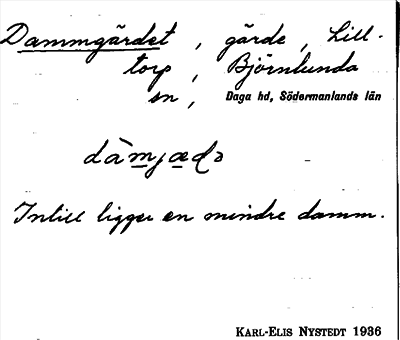 Dammgärdet, gärde, Lill-
torp, Björnlunda
sn, Daga hd, Södermanlands län
dàmjædə
Intill ligger en mindre damm.
KARL-ELIS NYSTEDT 1936